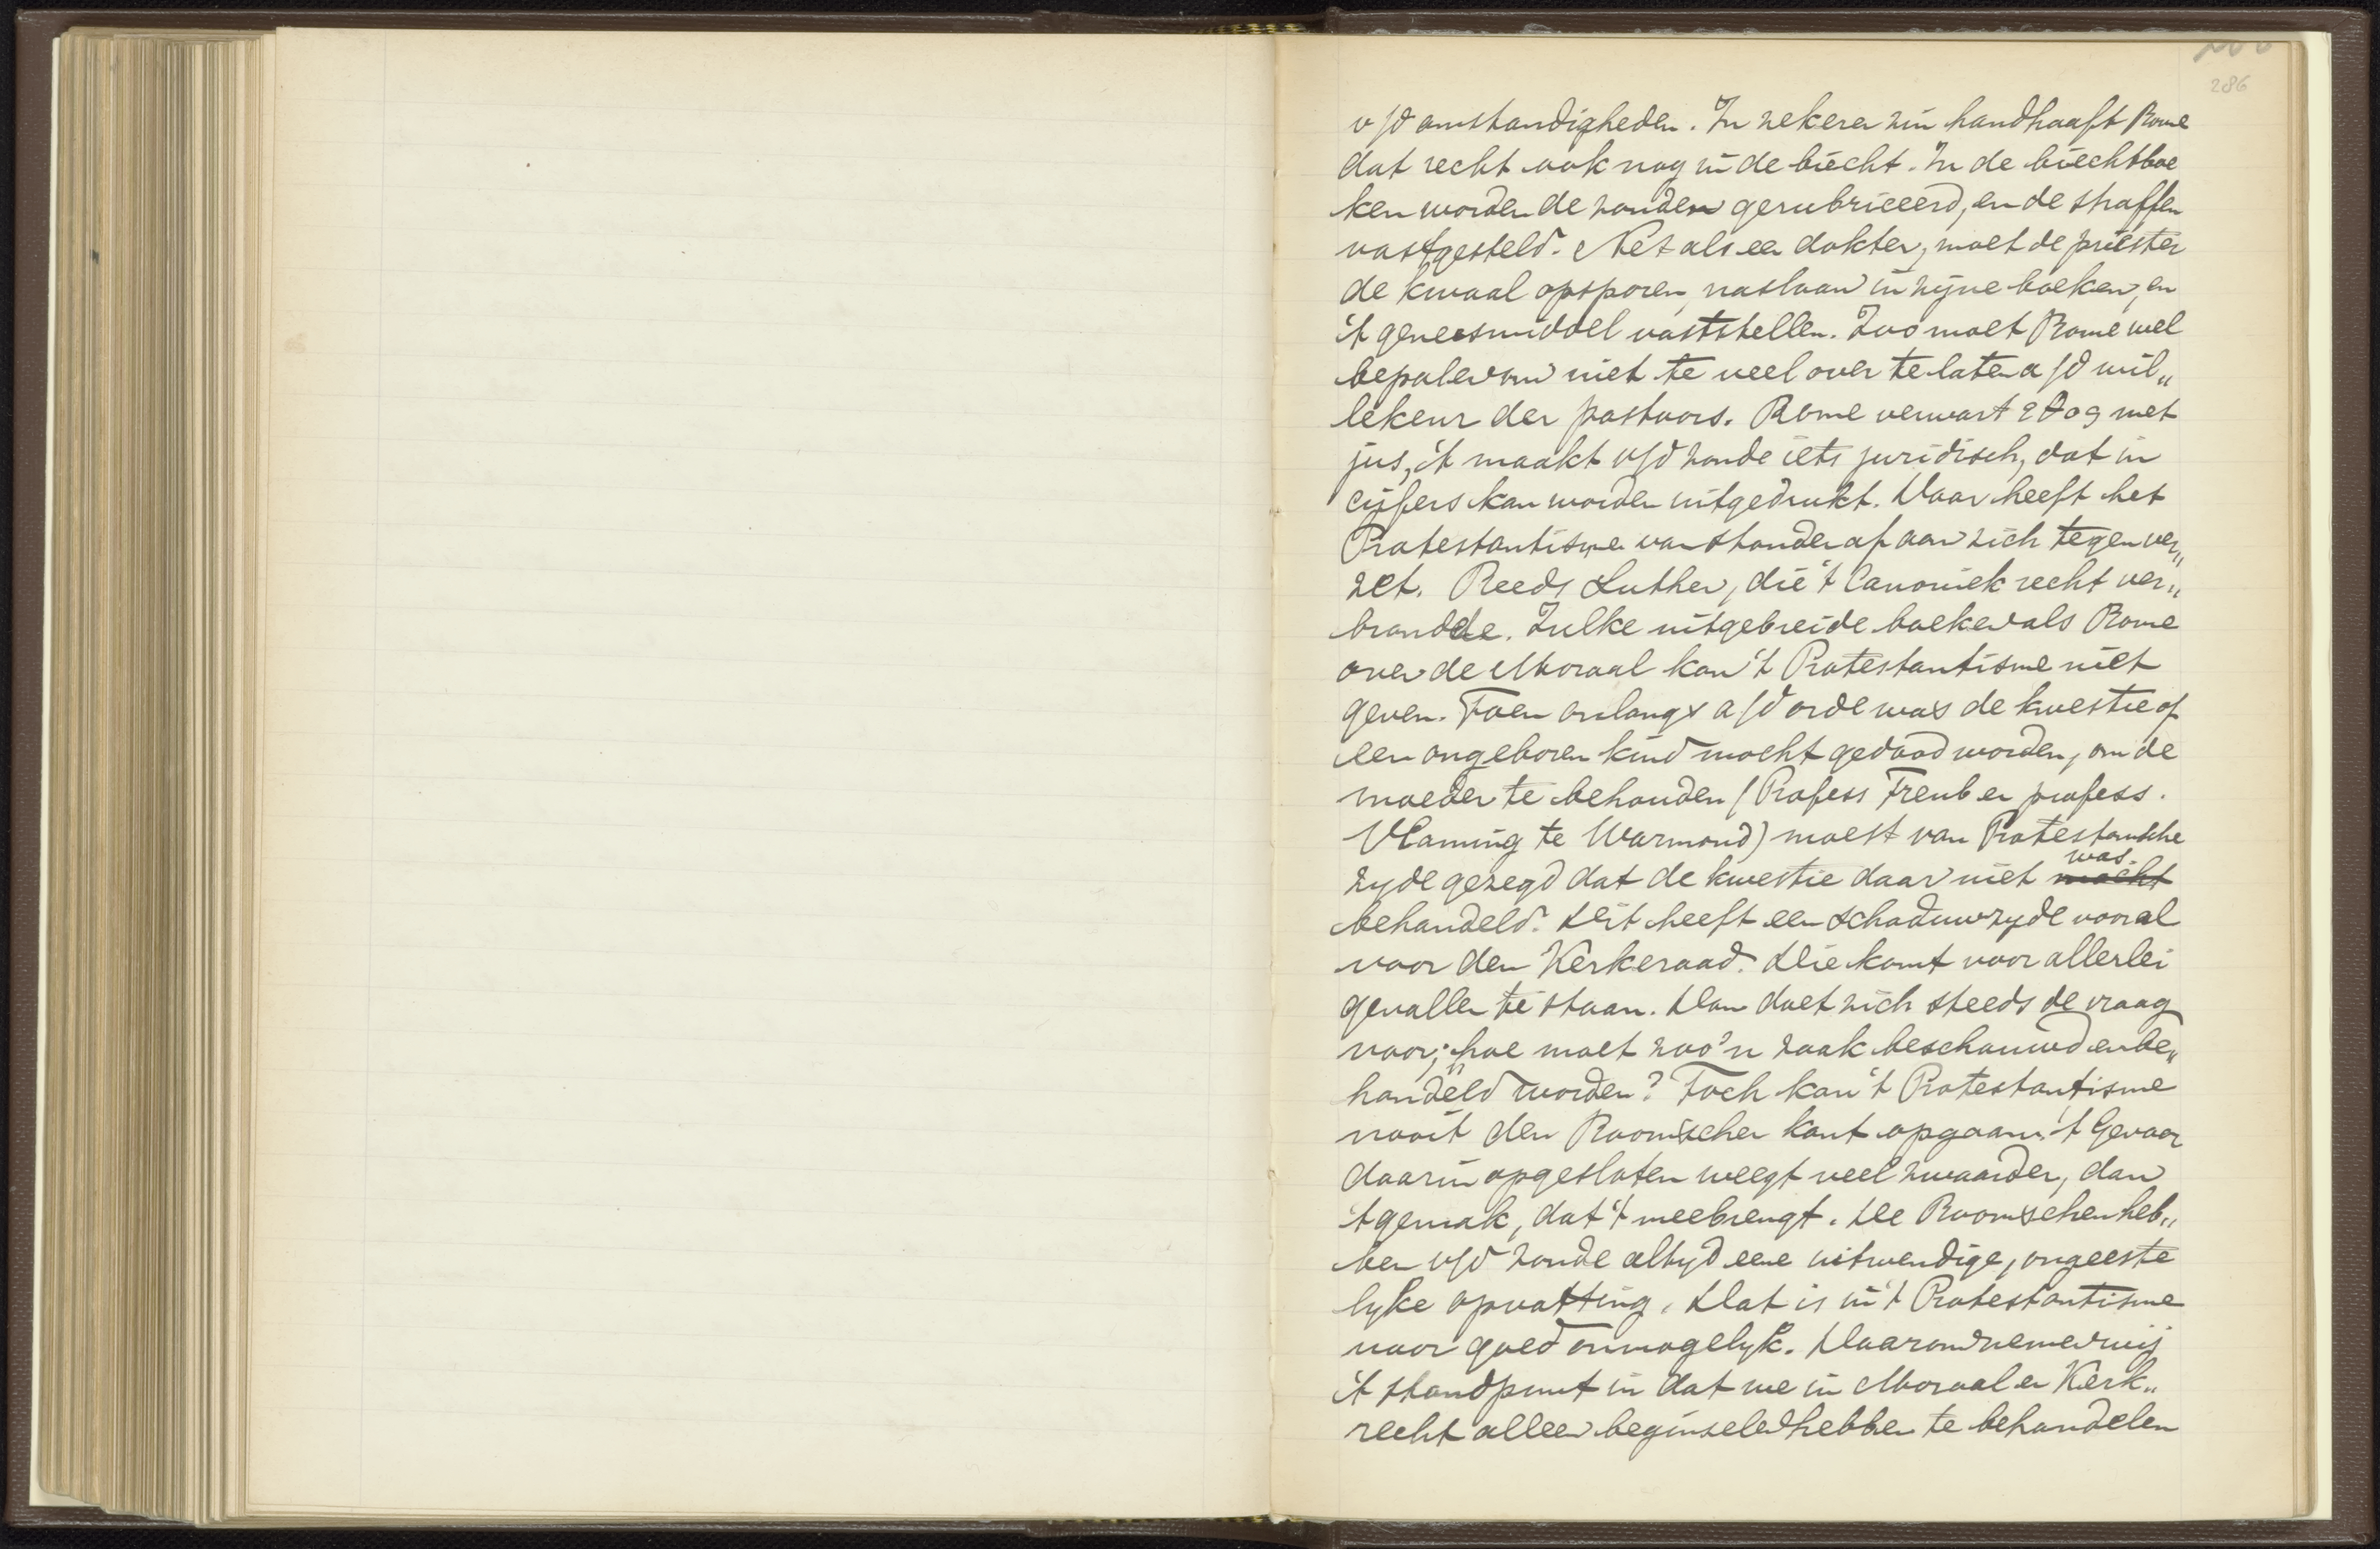 286
v/d omstandigheden. In zekeren zin handhaaft Rome
dat recht ook nog in de biecht. In de biechtboe
ken worden de zonden gerubriceerd, en de straffen
vastgesteld. Net als een dokter, moet de priester
de kwaal opsporen, naslaan in zijne boeken, en
't geneesmiddel vaststellen. Zoo moet Rome wel
bepalen om niet te veel over te laten a/d wil„
lekeur der pastoors. Rome verwart met
jus, 't maakt v/d zonde iets juridisch, dat in
cijfers kan worden uitgedrukt. Daar heeft het
Protestantisme van stonde af aan zich tegen ver„
zet. Reeds Luther, die 't Canoniek recht ver„
brandde. Zulke uitgebreide boeken als Rome
over de Moraal kan 't Protestantisme niet
geven. Toen onlangs a/d orde was de kwestie of
een ongeboren kind mocht gedood worden, om de
moeder te behouden (Profess Treub en profess.
Vlaming te Warmond) moest van Protestantsche
zyde gezegd dat de kwestie daar niet mocht was.
behandeld. Dit heeft een schaduwzyde vooral
voor den Kerkeraad. Die komt voor allerlei
gevallen te staan. Dan doet zich steeds de vraag
voor; hoe moet zoo'n zaak beschouwd en be„
handeld worden? Toch kan 't Protestantisme
nooit den Roomschen kant opgaan. 't Gevaar
daarin opgesloten weegt veel zwaarder, dan
't gemak, dat 't meebrengt. De Roomschen heb„
ben v/d zonde altyd eene uitwendige, ongeeste
lyke opvatting. Dat is in 't Protestantisme
voor goed onmogelyk. Daarom nemen wij
't standpunt in dat we in Moraal en Kerk„
recht alleen beginselen hebben te behandelen